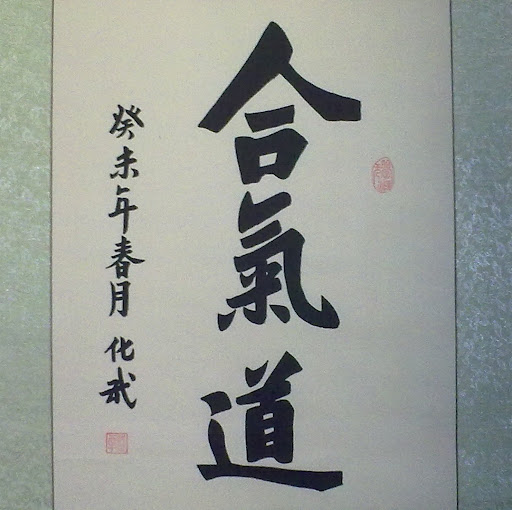 合氣道
癸未年春月 化武